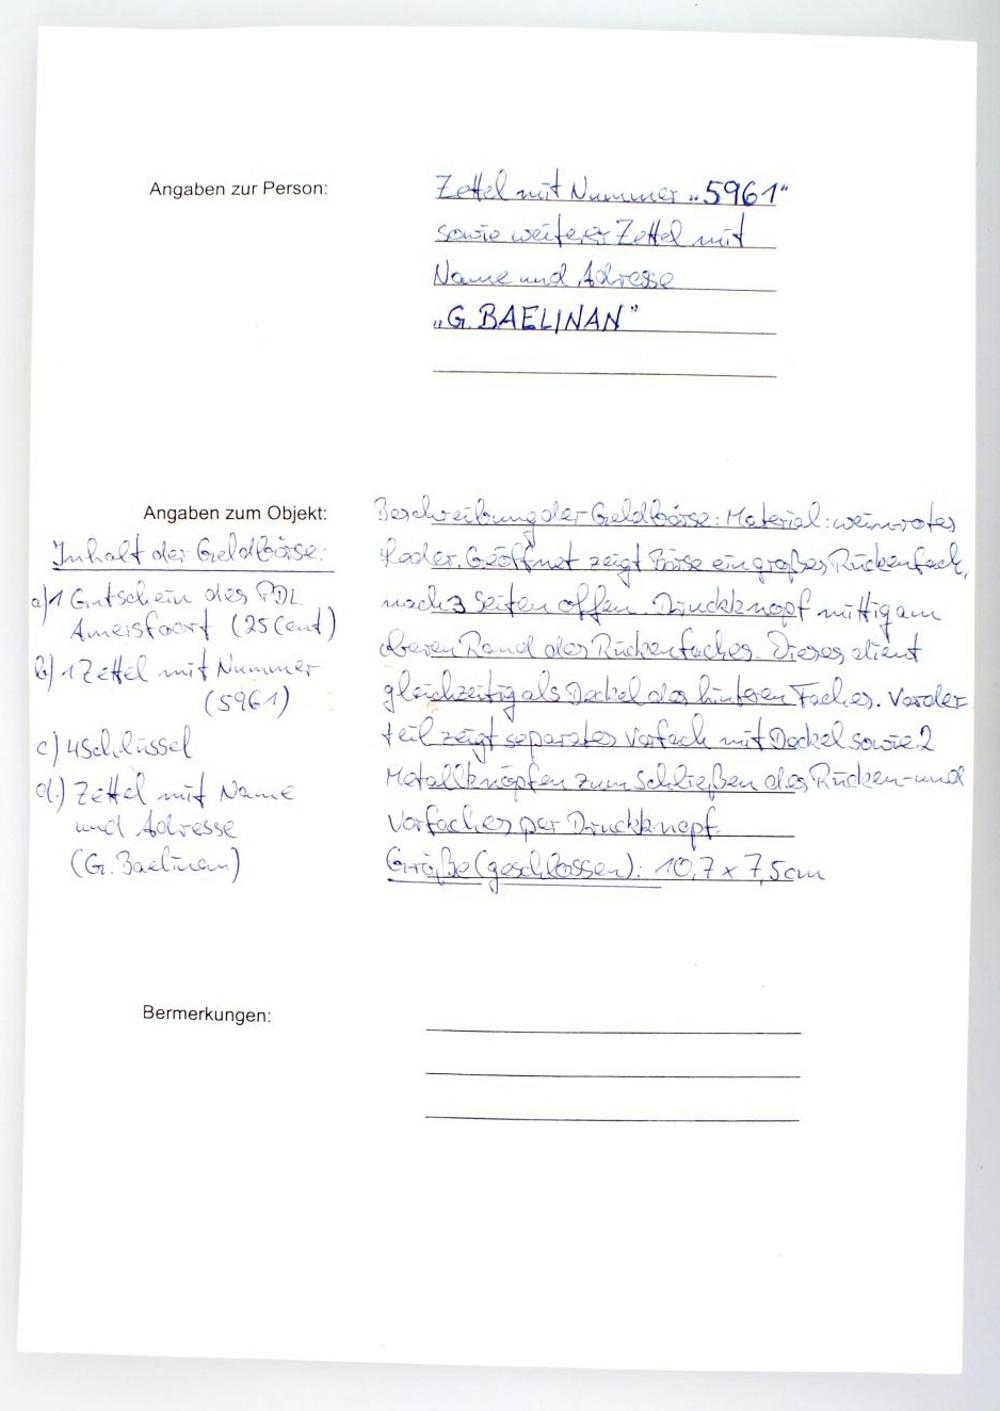 Angaben zur Person:
Zettel mit Nummer „5961“
sowie weiterer Zettel mit
Name und Adresse
„G. BAELINAN”
Angaben zum Objekt:
Inhalt der Geldbörse:
a) 1 Gutschein des PDL
Amersfoort (25 Cent)
b) 1 Zettel mit Nummer
(5961)
c) 4 Schlüssel
d.) Zettel mit Name
und Adresse
(G. Baelinan)
Beschreibung der Geldbörse: Material: weinrotes
Leder. Geöffnet zeigt Börse ein großes Rückenfach,
nach 3 Seiten offen. Druckknopf mittig am
oberen Rand des Rückenfaches. Dieses dient
gleichzeitig als Deckel des hinteren Faches. Vorder-
teil zeigt separates Vorfach mit Deckel sowie 2
Metallknöpfen zum Schließen des Rücken- und
Vorfaches per Druckknopf.
Größe (geschlossen): 10,7 x 7,5cm
Bermerkungen: